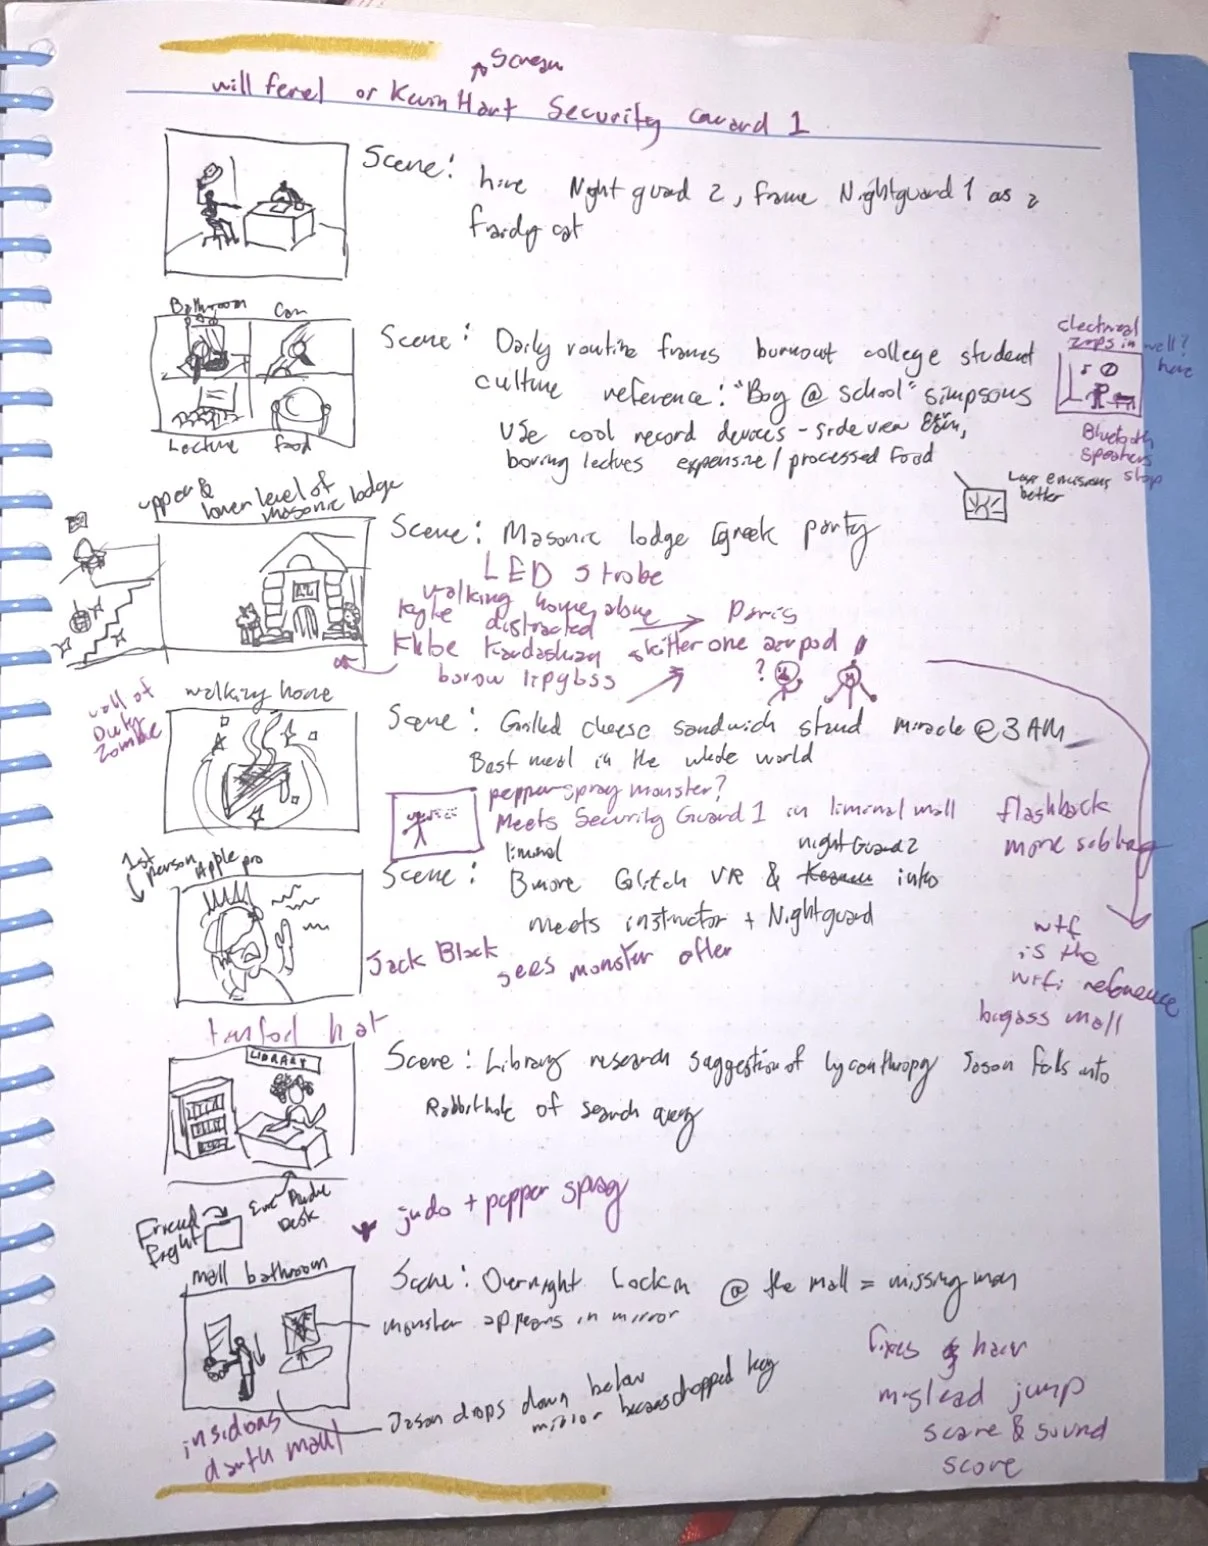 Scream
will ferel or Kevin Hart Security Guard 1
Scene: hire Night guard 2, frame Nightguard 1 as a
fraidy cat
Bathroom Car
Lecture food
Scene: Daily routine frames burnout college student
culture reference: "Boy @ School" simpsons
Use cool record devices - side view
boring lectures expensive / processed food
electrical
zaps in well?
here
Bluetooth
speakers
stop
Low emissions
better
upper &
lower level of
masonic lodge
Scene: Masonic lodge Greek party
LED strobe
walking home alone
Kylie distracted → Paris
Kardashian skitter one airpod
borow lipgloss
?
call of
Duty
Zombie
walking home
Scene: Grilled cheese sandwich stand miracle @ 3 AM
Best meal in the whole world
pepper spray monster?
Meets Security Guard 1 in liminal mall
flashback
more
liminal nightGuard 2
1st person Apple pro
Scene: Bmore Glitch VR & into
meets instructor + Nightguard
Jack Black sees monster after
wtf
is the
wifi reference
bigass mall
hat
LIBRARY
Scene: Library research suggestion of lycanthropy Jason falls into
Rabbithole of search query
Desk
judo + pepper spray
mall bathroom
Scene: Overnight Lockin @ the mall = missing man
monster appears in mirror
Jason drops down below
mirror because dropped key
fixes hair
mislead jump
scare & sound
score
insidious
darth maul